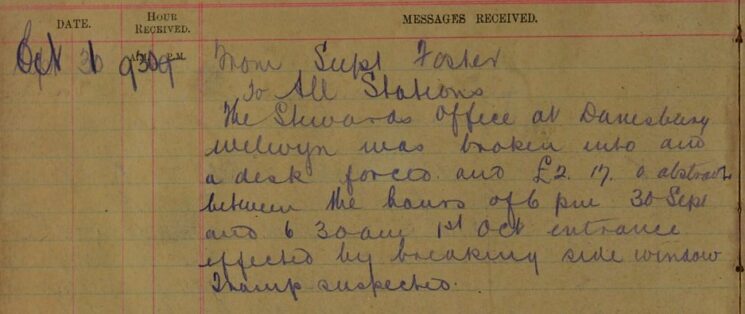 DATE. HOUR RECEIVED. MESSAGES RECEIVED.
A.M. P.M.
Oct 9 30
From Supt Foster
To All Stations
The Stewards Office at Danesbury
Welwyn was broken into and
a desk forced and £2. 17. 0 abstract
between the hours of 6 pm 30 Sept
and 6 30 am 1st Oct entrance
effected by breaking side window
Tramp suspected.